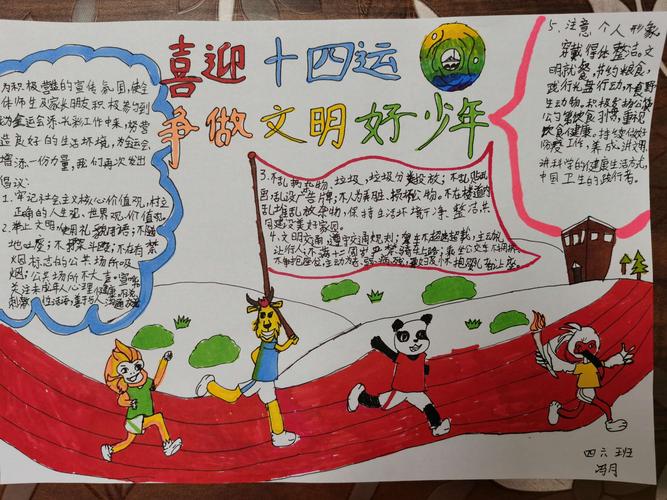 喜迎十四运
争做文明好少年
为积极营造的宣传氛围,使全
体师生及家长朋友积极参与到
全运会添光彩工作中来,努力营
造良好的生活环境,为全运会
增添一份力量,我们再次发出
倡议:
1.牢记社会主义核心价值观,树立
正确的人生观,世界观,价值观。
2.举止文明,使用礼貌用语;不随
地吐痰;不
烟标志的公共场所吸
烟;公共场所不大声喧哗
关注未成年人心理健康
3.不乱扔
圾,垃圾分类投放;不乱贴乱
画乱设广告牌;不人为弄脏、损坏公物。不在楼道内
乱堆乱放杂物,保持生活环境干净、整洁,共
同建设美好家园。
4.文明交通,遵守交通规则;驾车不超速超载,主动礼
让行人;不满十二周岁
5、注意个人形象
穿戴得体整洁。文
明就餐,节约粮食,
践行光盘行动,不食野
生动物。积极支持公筷
公勺
饮食健康。持续做好
防疫工作,养成讲文明
讲科学的健康生活方式,
中国卫生的践行者。
四六班
冯月